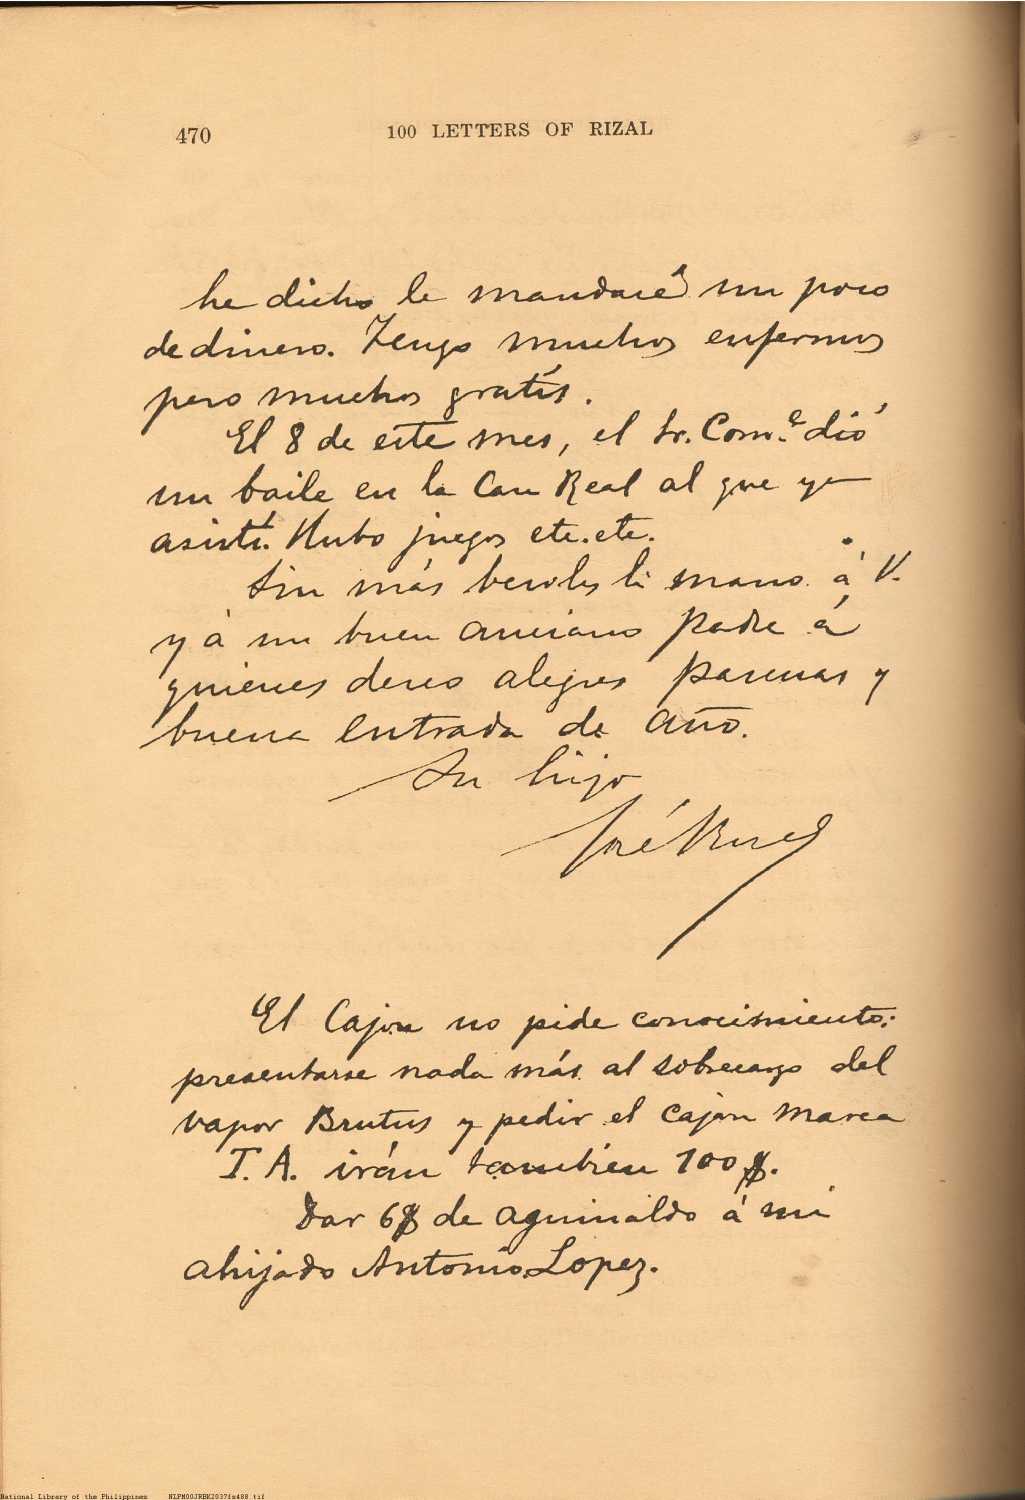 470
100 LETTERS OF RIZAL
he dicho le mandaré un poco
de dinero. Tengo muchos enfermos
pero muchos gratis.
El 8 de este mes, el Sr. Com.e dió
un baile en la Casa Real al que yo
asistí. Hubo juegos etc. etc.
Sin más besoles la mano á V.
y á mi buen anciano padre á
quienes deseo alegres pascuas y
buena entrada de año.
Su hijo
José Rizal
El Cajon no pide conocimiento:
presentarse nada más al sobrecargo del
vapor Brutus y pedir el cajon marca
T. A. irán tambien 100$.
Dar 6$ de aguinaldo á mi
ahijado Antonio Lopez.
National Library of the Philippines NLPM00JRBK2037fs488.tif